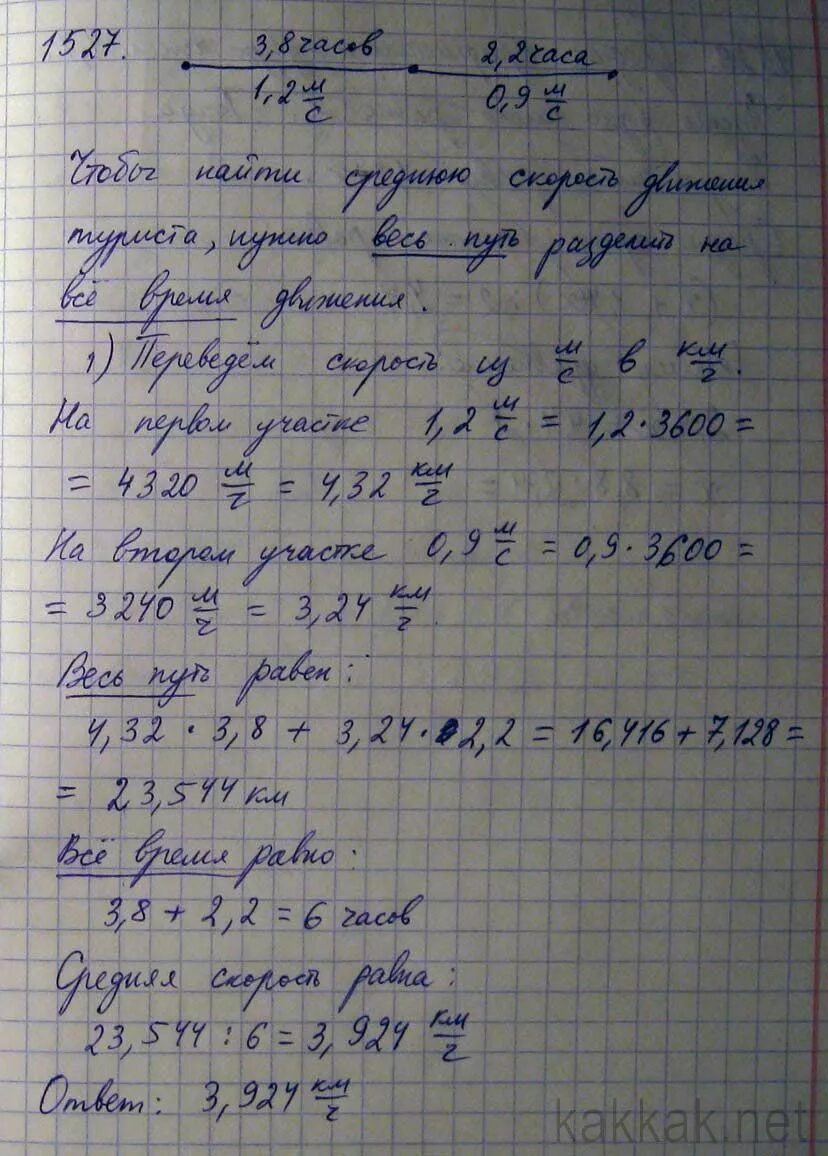 1527. 3,8 часов 2,2 часа
1,2 м/с 0,9 м/с
Чтобы найти среднюю скорость движения
туриста, нужно весь путь разделить на
всё время движения.
1) Переведём скорость из м/с в км/ч.
На первом участке 1,2 м/с = 1,2 · 3600 =
= 4320 м/ч = 4,32 км/ч
На втором участке 0,9 м/с = 0,9 · 3600 =
= 3240 м/ч = 3,24 км/ч.
Весь путь равен:
4,32 · 3,8 + 3,24 · 2,2 = 16,416 + 7,128 =
= 23,544 км
Всё время равно:
3,8 + 2,2 = 6 часов
Средняя скорость равна:
23,544 : 6 = 3,924 км/ч
Ответ: 3,924 км/ч
kakkak.net